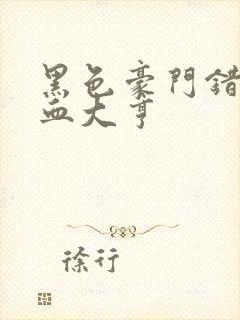 黑色豪門錯
血大亨
徐行